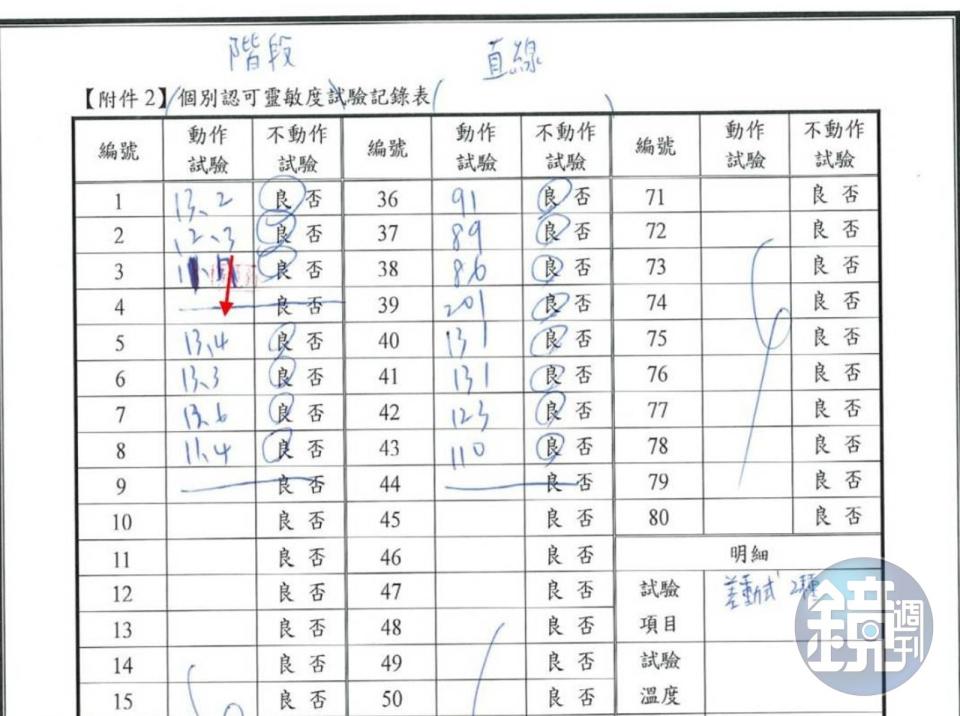 階段 直線
【附件 2】(個別認可靈敏度試驗記錄表( )
編號 動作試驗 不動作試驗 編號 動作試驗 不動作試驗 編號 動作試驗 不動作試驗
1 13.2 良 否 36 91 良 否 71 良 否
2 12.3 良 否 37 89 良 否 72 良 否
3 良 否 38 86 良 否 73 良 否
4 良 否 39 201 良 否 74 良 否
5 13.4 良 否 40 131 良 否 75 良 否
6 13.3 良 否 41 131 良 否 76 良 否
7 13.6 良 否 42 123 良 否 77 良 否
8 11.4 良 否 43 110 良 否 78 良 否
9 良 否 44 良 否 79 良 否
10 良 否 45 良 否 80 良 否
11 良 否 46 良 否 明細
12 良 否 47 良 否 試驗項目 差動式 2種
13 良 否 48 良 否
14 良 否 49 良 否 試驗溫度
15 良 否 50 良 否
鏡週刊